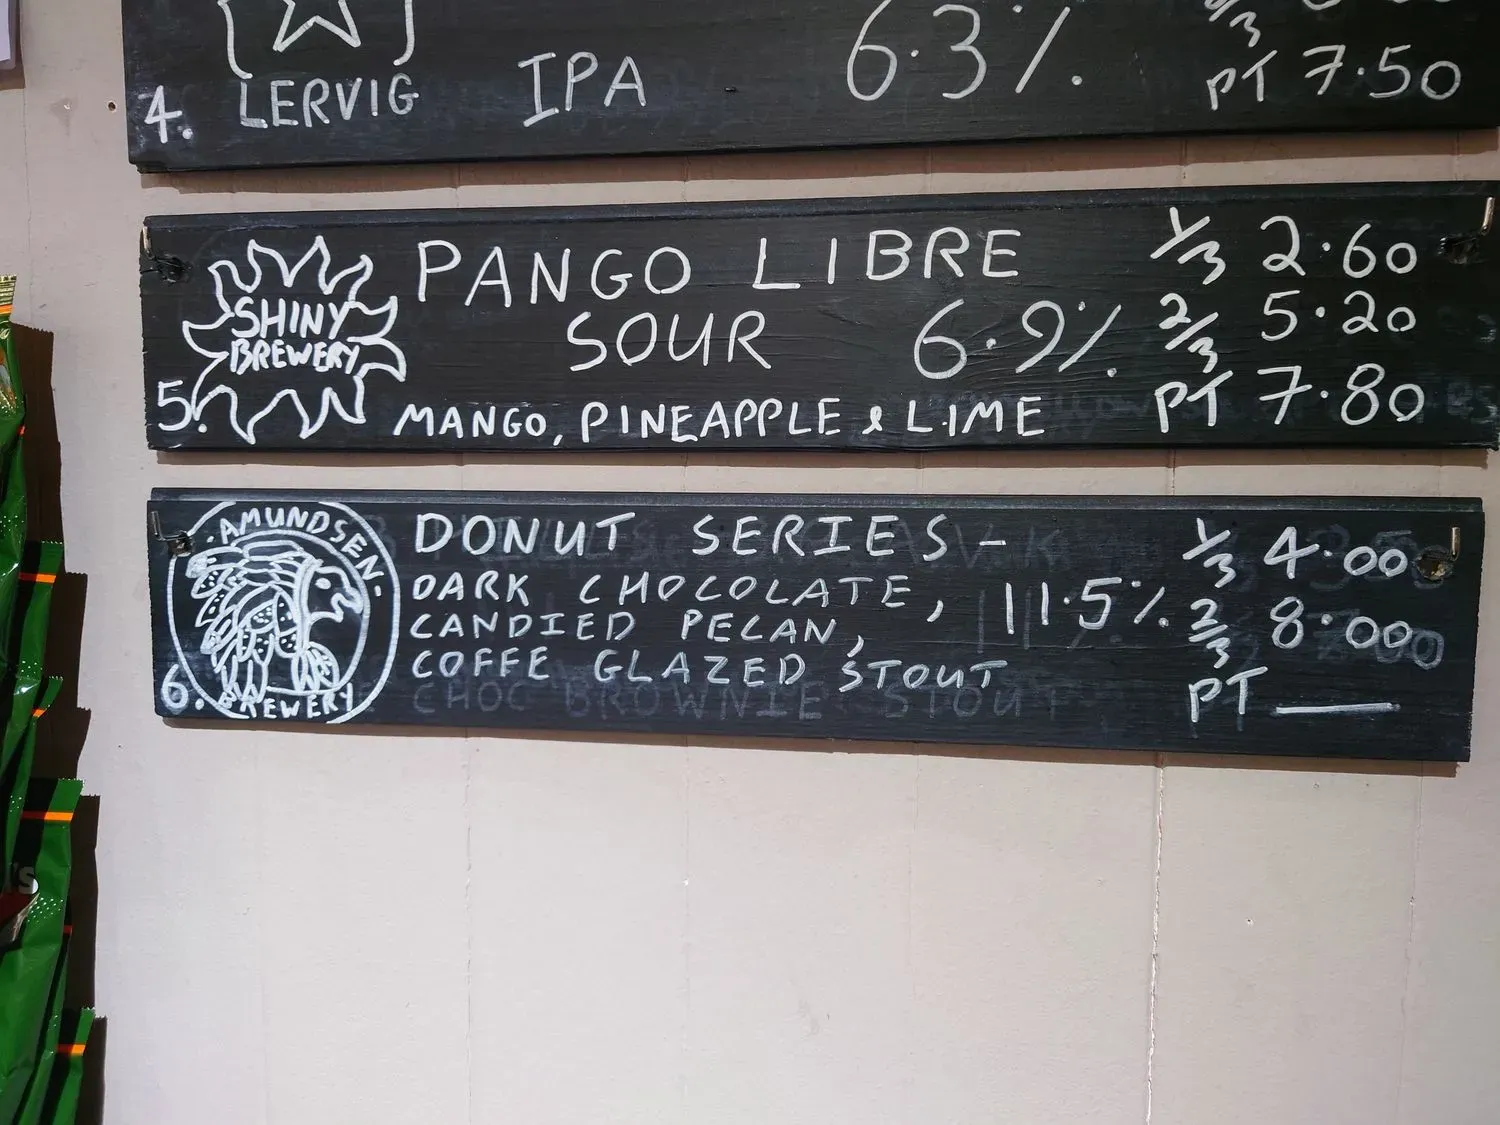 4. LERVIG IPA 6.3%. PT 7.50
SHINY BREWERY
5.
PANGO LIBRE
SOUR 6.9%.
MANGO, PINEAPPLE & LIME
1/3 2.60
2/3 5.20
PT 7.80
AMUNDSEN
BREWERY
6.
DONUT SERIES-
DARK CHOCOLATE, 11.5%.
CANDIED PECAN,
COFFE GLAZED STOUT
CHOC BROWNIE STOUT
1/3 4.00
2/3 8.00
PT